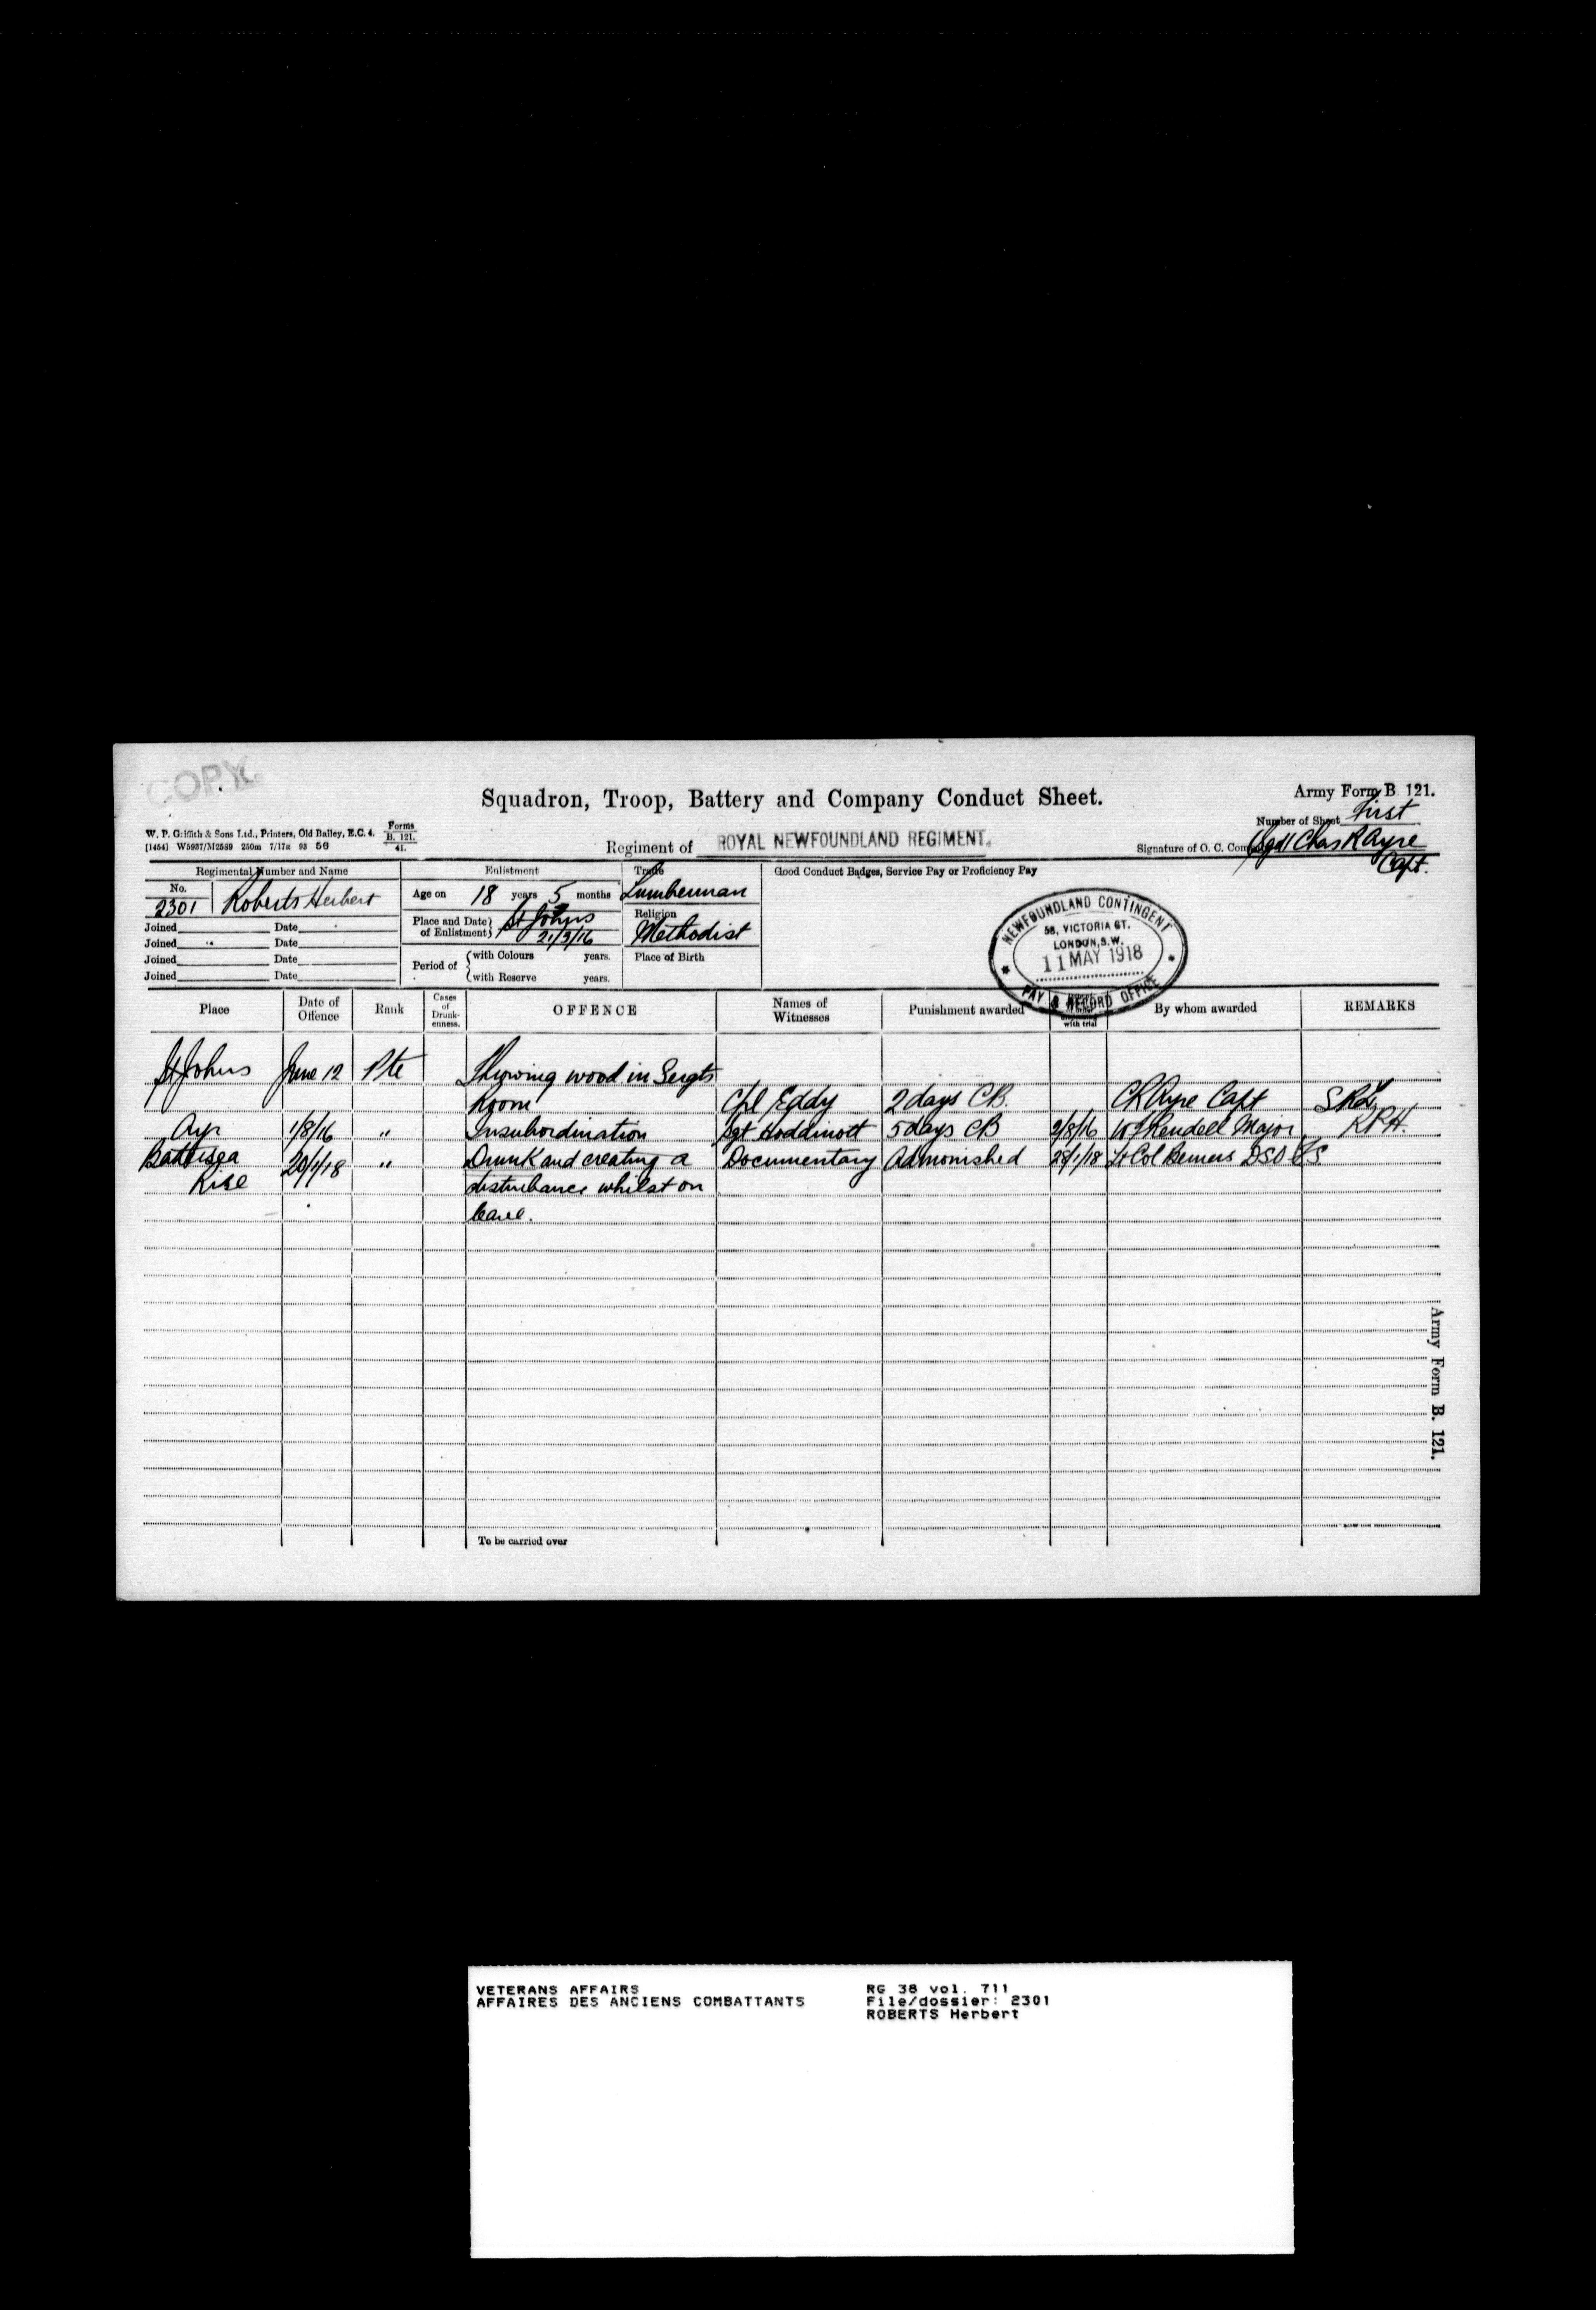 COPY.
Squadron, Troop, Battery and Company Conduct Sheet.
Army Form B. 121.
W. P. Griffith & Sons Ltd., Printers, Old Bailey, E.C. 4.
[1454] W5937/M2589 250m 7/17s 93 56
Forms
B. 121.
41.
Regiment of ROYAL NEWFOUNDLAND REGIMENT.
Number of Sheet First
Signature of O. C. Chas R Ayre
Capt.
Regimental Number and Name
No.
2301 Roberts Herbert
Joined Date
Joined Date
Joined Date
Joined Date
Enlistment
Age on 18 years 5 months
Place and Date of Enlistment St Johns
21/3/16
Period of with Colours years.
with Reserve years.
Trade
Lumberman
Religion
Methodist
Place of Birth
Good Conduct Badges, Service Pay or Proficiency Pay
NEWFOUNDLAND CONTINGENT
58, VICTORIA ST.
LONDON, S.W.
11 MAY 1918
PAY & RECORD OFFICE
Place Date of Offence Rank Cases of Drunkenness. OFFENCE Names of Witnesses Punishment awarded with trial By whom awarded REMARKS
St Johns June 12 Pte Throwing wood in Sergts
Room Cpl Eddy 2 days CB. CR Ayre Capt
Ayr 1/8/16 " Insubordination Sgt Hoddinott 5 days CB 2/8/16 W F Rendell Major
Battersea 20/1/18 " Drunk and creating a Documentary Admonished 28/1/18 Lt Col Berners DSO
Rise disturbance whilst on
leave.
To be carried over
Army Form B. 121.
VETERANS AFFAIRS
AFFAIRES DES ANCIENS COMBATTANTS
RG 38 vol. 711
File/dossier: 2301
ROBERTS Herbert